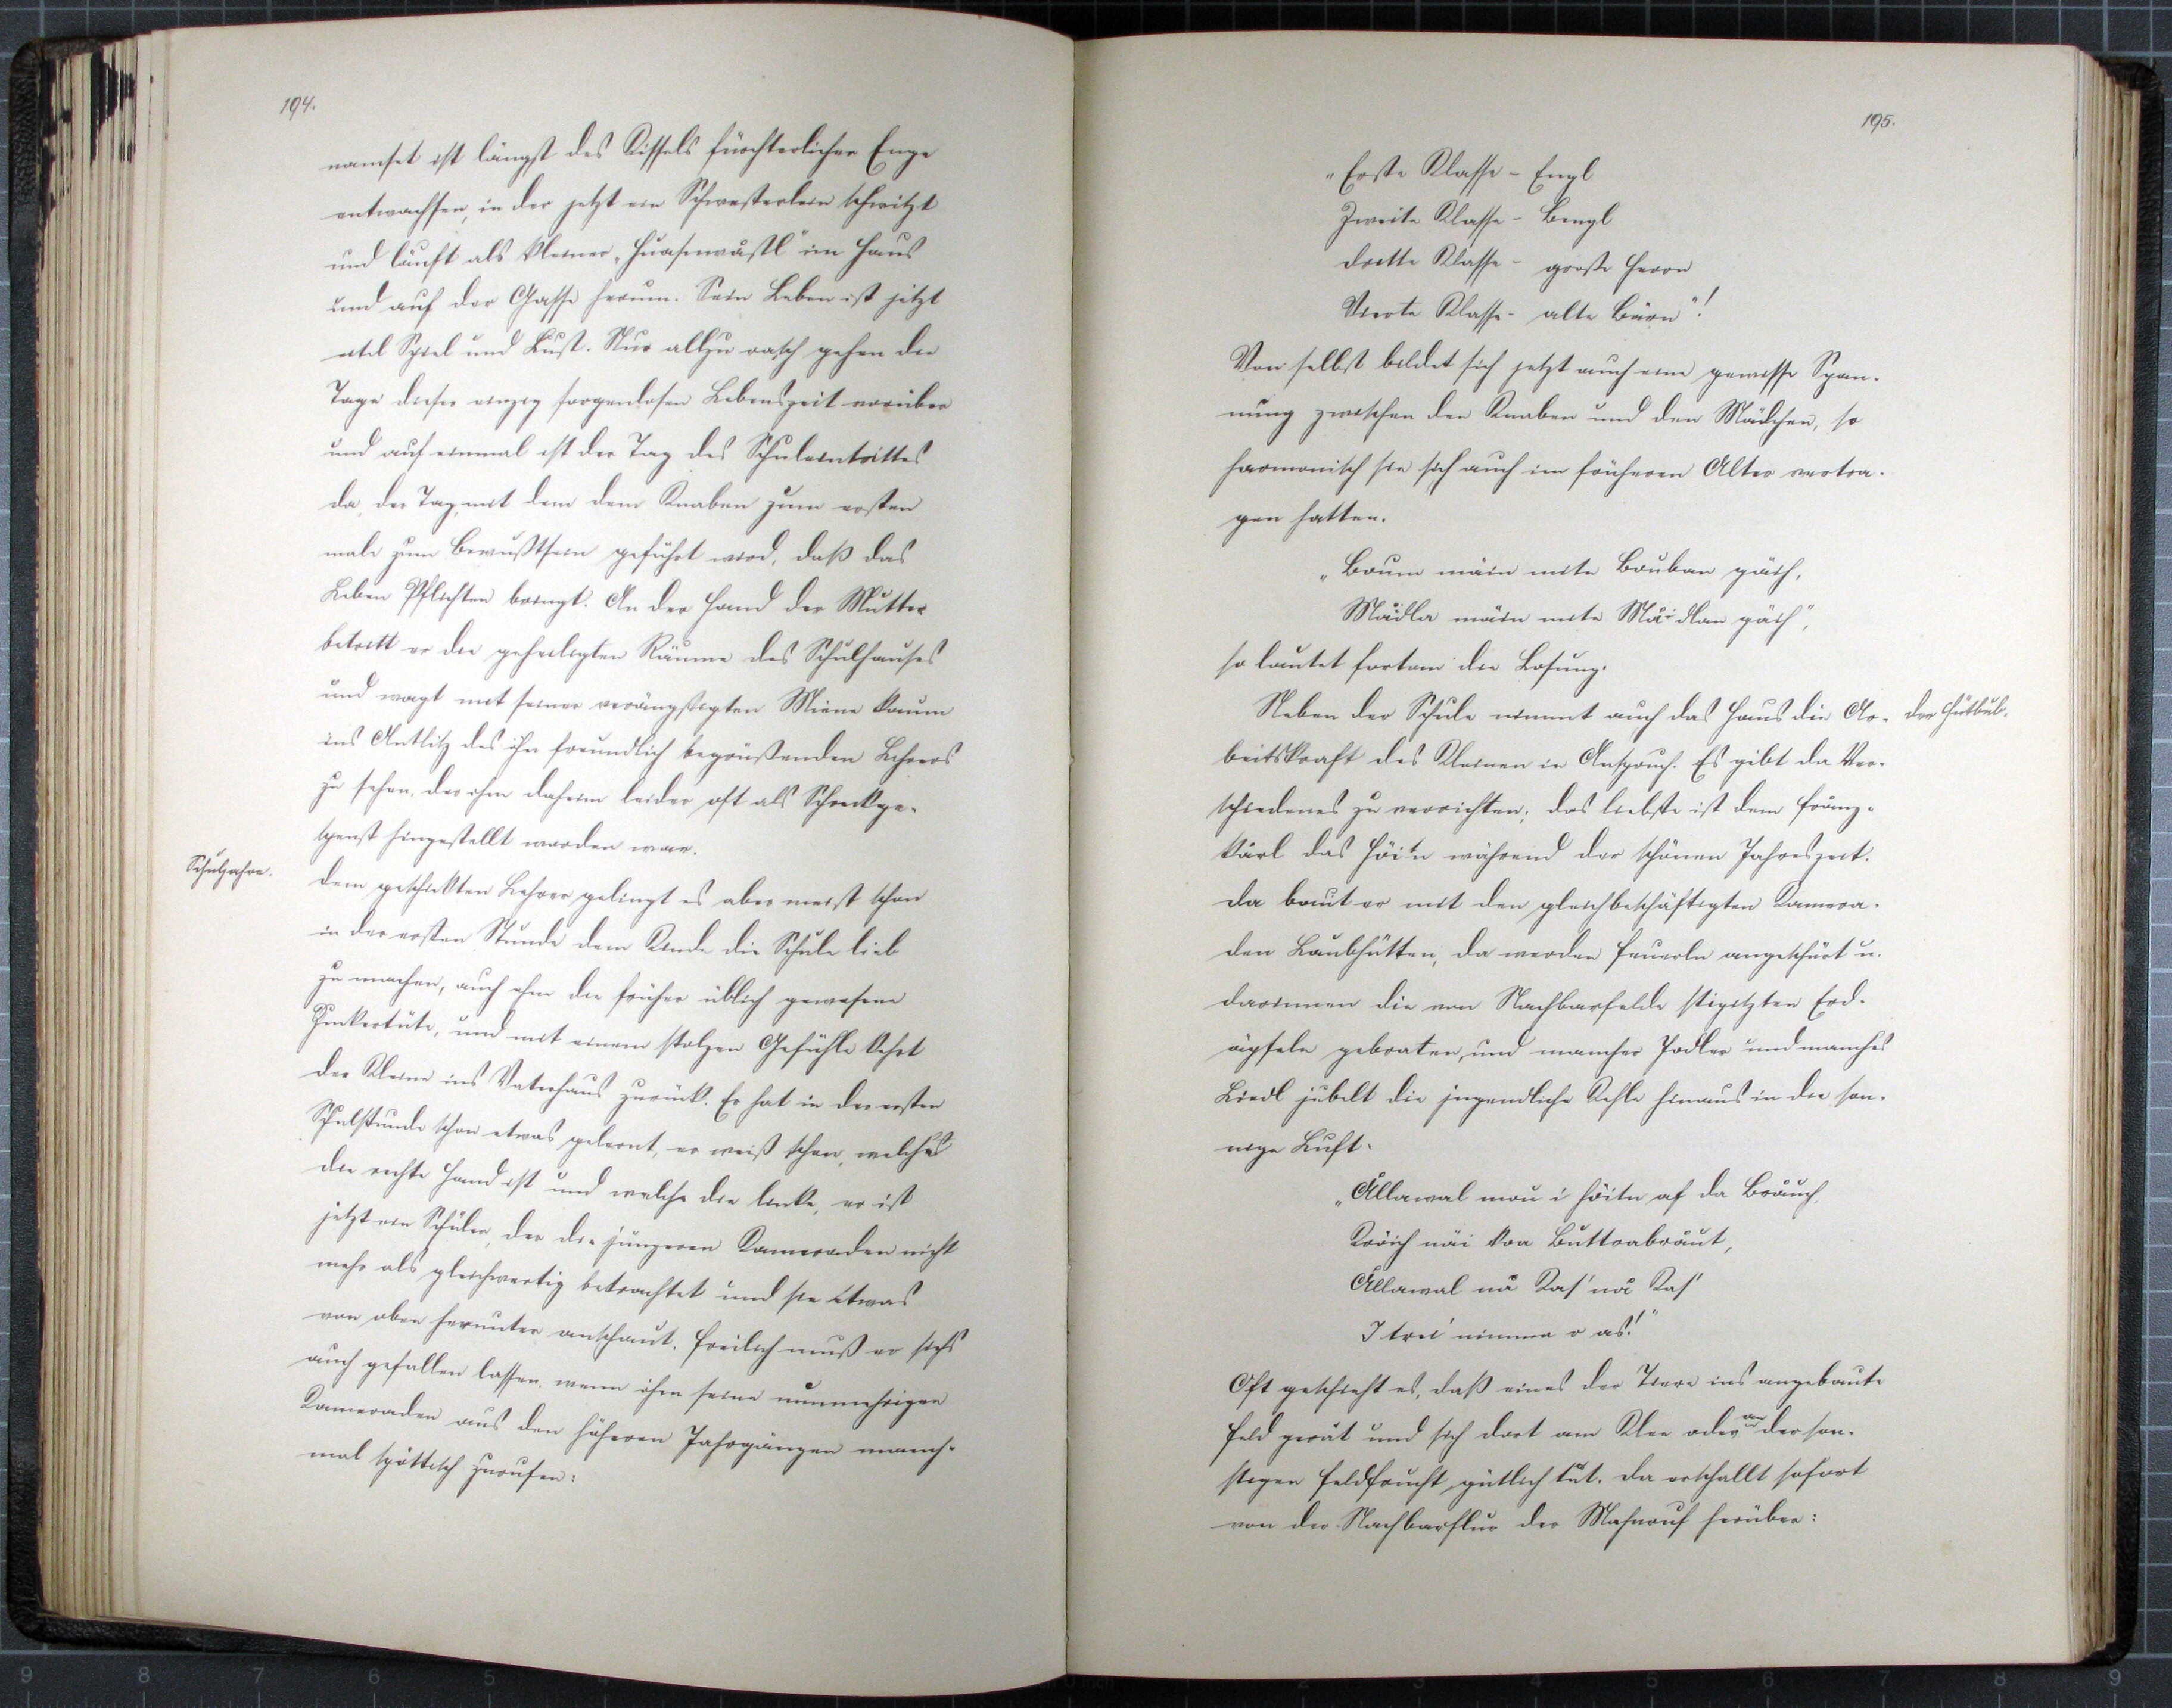 194.
namset ist längst des Kissels fürchterlicher Enge
entwachsen, in der jetzt ein Schwesterlein schwitzt
und läuft als kleiner „Huasnwåstl" im Haus
und auf der Gasse herum. Sein Leben ist jetzt
eitel Spiel und Lust. Nur allzu rasch gehen die
Tage dieser einzig sorgenlosen Lebenszeit vorüber
und auf einmal ist der Tag des Schuleintrittes
da, der Tag, mit dem dem Knaben zum ersten
male zum Bewußtsein geführt wird, daß das
Leben Pflichten bringt. An der Hand der Mutter
betritt er die geheiligten Räume des Schulhauses
und wagt mit seiner verängstigten Miene kaum
ins Antlitz des ihn freundlich begrüßenden Lehrers
zu sehen, der ihm daheim leider oft als Schreckge-
spenst hingestellt worden war.
Schuljahre.
Dem geschickten Lehrer gelingt es aber meist schon
in der ersten Stunde dem Kinde die Schule lieb
zu machen, auch ohne die früher üblich gewesene
Zuckertüte, und mit einem stolzen Gefühle kehrt
der Kleine ins Vaterhaus zurück. Er hat in der ersten
Schulstunde schon etwas gelernt, er weiß schon, welches
die rechte Hand ist und welche die linke, er ist
jetzt ein Schüler, der die jüngeren Kameraden nicht
mehr als gleichwertig betrachtet und sie etwas
von oben herunter anschaut. Freilich muß er sichs
auch gefallen lassen, wenn ihm seine nunmehrigen
Kameraden aus den höheren Jahrgängen manch-
mal spöttisch zurufen:
195.
„Erste Klasse - Engl
Zweite Klasse - Bengl
Dritte Klasse - große Herrn
Vierte Klasse - alte Bärn"!
Von selbst bildet sich jetzt auch eine gewisse Span-
nung zwischen den Knaben und den Mädchen, so
harmonisch sie sich auch im früheren Alter vertra-
gen hatten.
„Boum mäin mita Bouban gäih,
Måidla mäin mita Måidlan gäih",
so lautet fortan die Losung.
Neben der Schule nimmt auch das Haus die Ar-
der Hütbub.
beitskraft des Kleinen in Anspruch. Es gibt da Ver-
schiedenes zu verrichten; das liebste ist dem Franz-
karl das Höitn während der schönen Jahreszeit.
Da baut er mit den gleichbeschäftigten Kamera-
den Laubhütten, da werden Feuerln angeschürt u.
darinnen die von Nachbarfelde stipitzten Erd-
äpfeln gebraten, und mancher Jodler und manches
Liedl jubelt die jugendliche Kehle hinaus in die son-
nige Luft.
„Ållawal mou i höitn af da Bråuch,
Kröich näi koa Buttrabråut,
Ållawal nå Kas' nå Kas'
I trei' nimma o as!"
Oft geschieht es, daß eines der Tiere ins angebaute
Feld gerät und sich dort am Klee oder an der son-
stigen Feldfrucht gütlich tut. Da erschallt sofort
von der Nachbarflur der Mahnruf herüber: